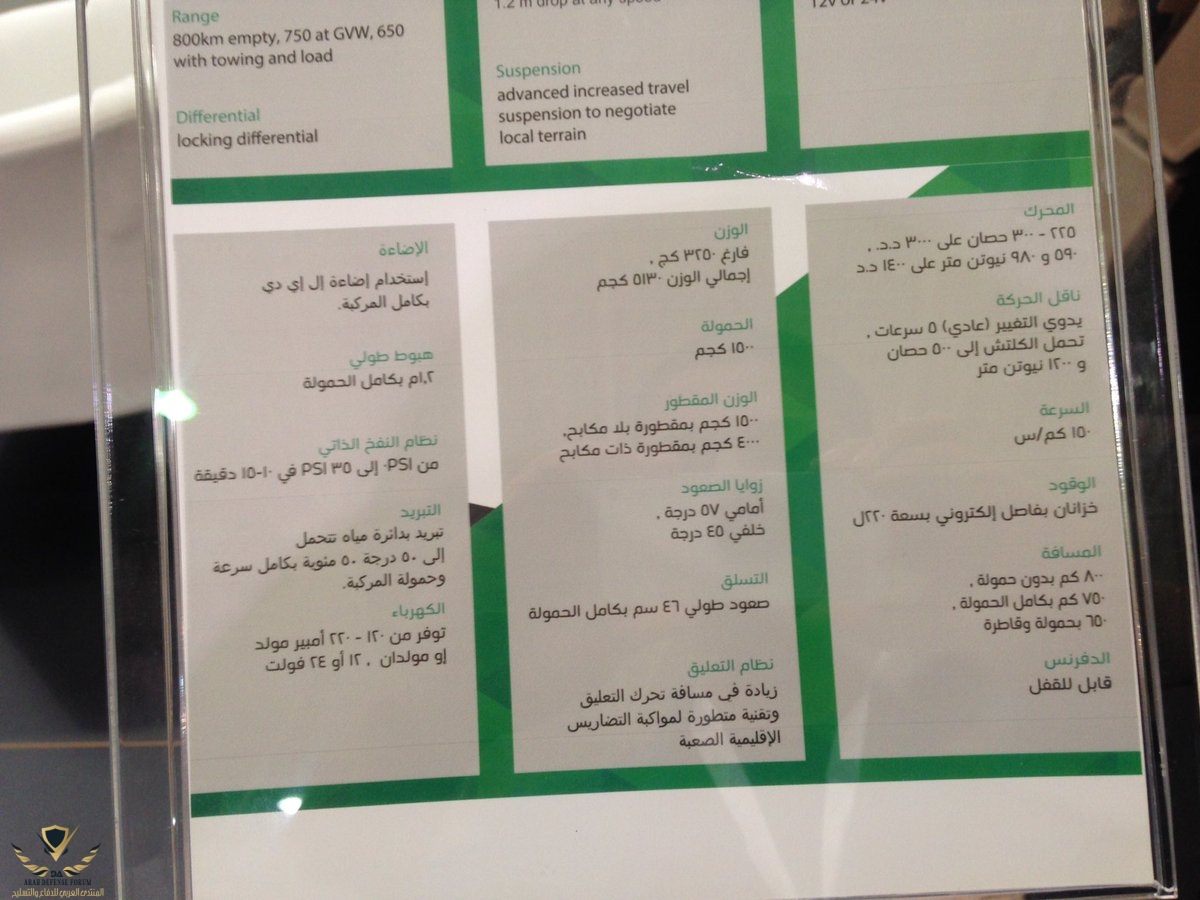 Range
800km empty, 750 at GVW, 650
with towing and load
Differential
locking differential
1.2 m drop at any speed
Suspension
advanced increased travel
suspension to negotiate
local terrain
12v or 24v
المحرك
٢٢٥ - ٣٠٠ حصان على ٣٠٠٠ د.د. ,
٥٩٠ و ٩٨٠ نيوتن متر على ١٤٠٠ د.د
ناقل الحركة
يدوي التغيير (عادي) ٥ سرعات ,
تحمل الكلتش إلى ٥٠٠ حصان
و ١٢٠٠ نيوتن متر
السرعة
١٥٠ كم/س
الوقود
خزانان بفاصل إلكتروني بسعة ٢٢٠ل
المسافة
٨٠٠ كم بدون حمولة ,
٧٥٠ كم بكامل الحمولة ,
٦٥٠ بحمولة وقاطرة
الدفرنس
قابل للقفل
الوزن
فارغ ٣٢٥٠ كج ,
إجمالي الوزن ٥١٣٠ كجم
الحمولة
١٥٠٠ كجم
الوزن المقطور
١٥٠٠ كجم بمقطورة بلا مكابح,
٤٠٠٠ كجم بمقطورة ذات مكابح
زوايا الصعود
أمامي ٥٧ درجة ,
خلفي ٤٥ درجة
التسلق
صعود طولي ٤٦ سم بكامل الحمولة
نظام التعليق
زيادة في مسافة تحرك التعليق
وتقنية متطورة لمواكبة التضاريس
الإقليمية الصعبة
الإضاءة
إستخدام إضاءة إل إي دي
بكامل المركبة.
هبوط طولي
١,٢م بكامل الحمولة
نظام النفخ الذاتي
من PSI٠ إلى ٣٥ PSI في ١٠-١٥ دقيقة
التبريد
تبريد بدائرة مياه تتحمل
إلى ٥٠ درجة ٥٠ مئوية بكامل سرعة
وحمولة المركبة.
الكهرباء
توفر من ١٢٠ - ٢٢٠ أمبير مولد
إو مولدان , ١٢ أو ٢٤ فولت
DA
ARAB DEFENSE FORUM
المنتدى العربي للدفاع والتسليح